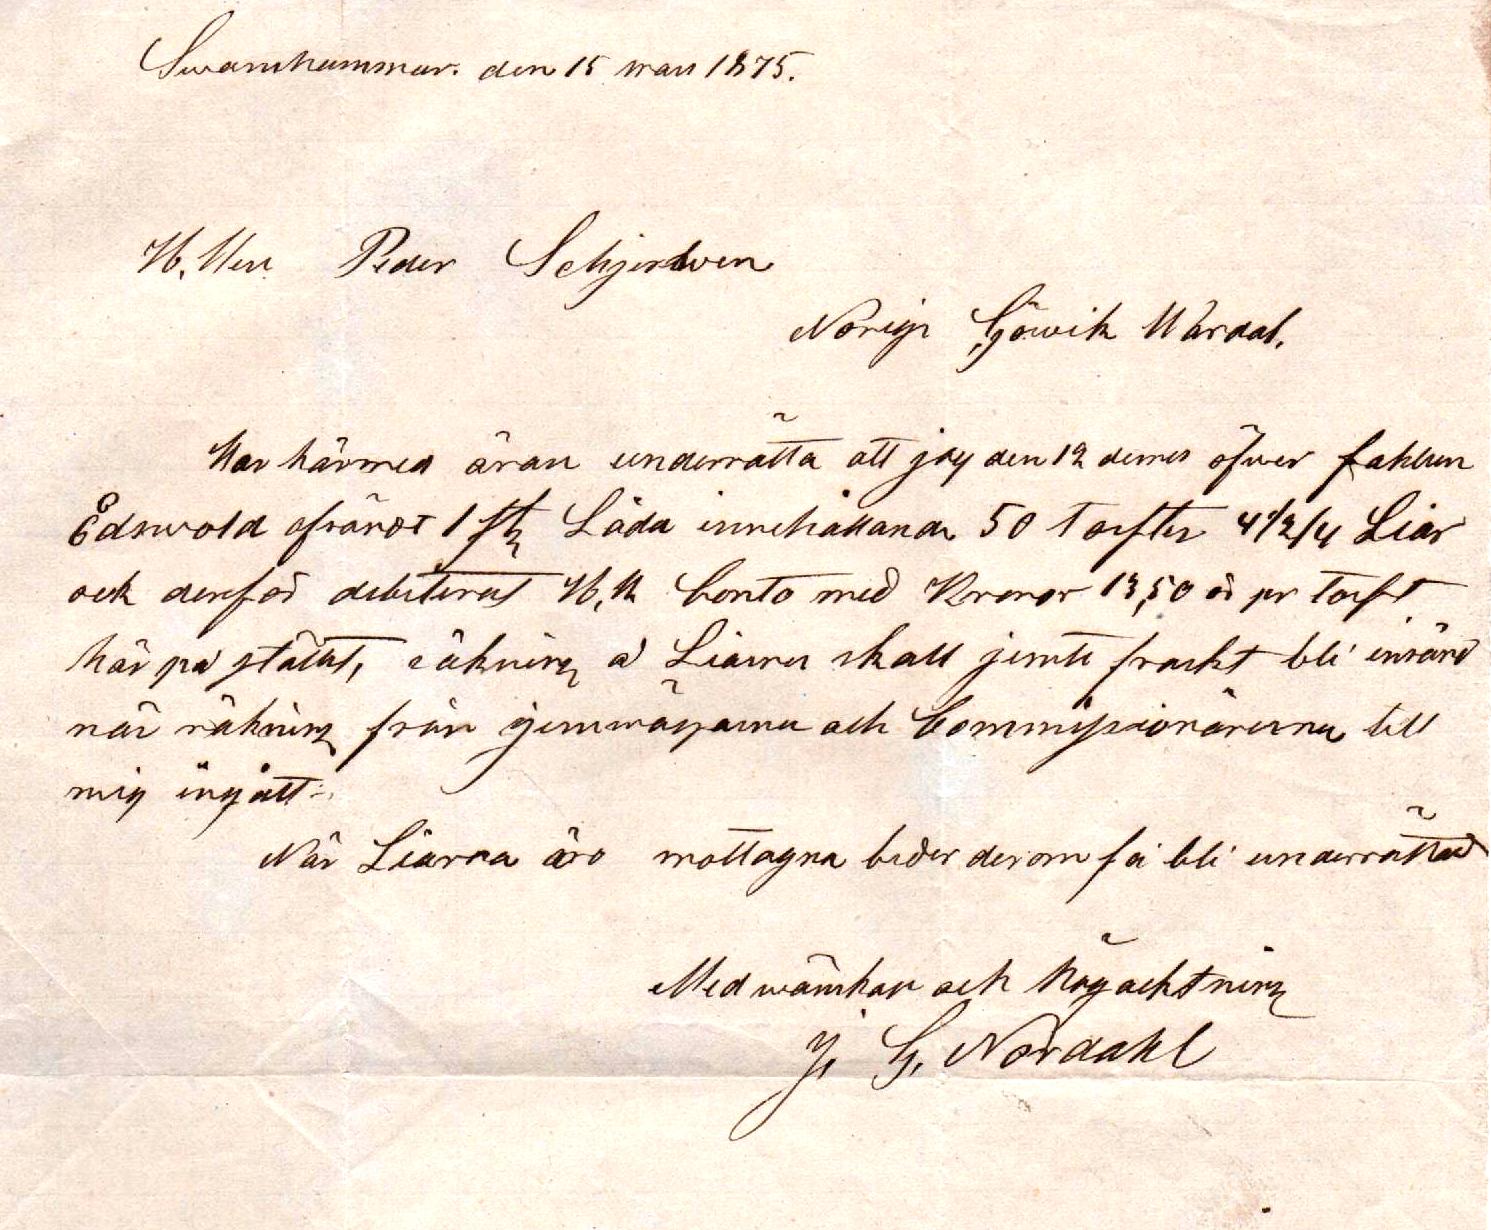 Swanhammar. den 15 mars 1875.
H. Herr Peder Schjerdwen
Norige Gjöwik Wardal.
Har härmed äran underrätta att jag den 12 dennes öfwer fahlun
Edswold afsändt 1 st Låda innehållande 50 tolfter 4 1/2/4 Liar
och derför debiterat H. H Conto med Kronor 13,50 ö pr tolft
här på stället, räkning å Liarna skall jemte frackt bli insänd
när räkning från jernwägarna och Commissionärerna till
mig ingått.
När Liarna äro mottagna beder derom få bli underrättad
Med wänskap och Högachtning
J. G. Nordahl